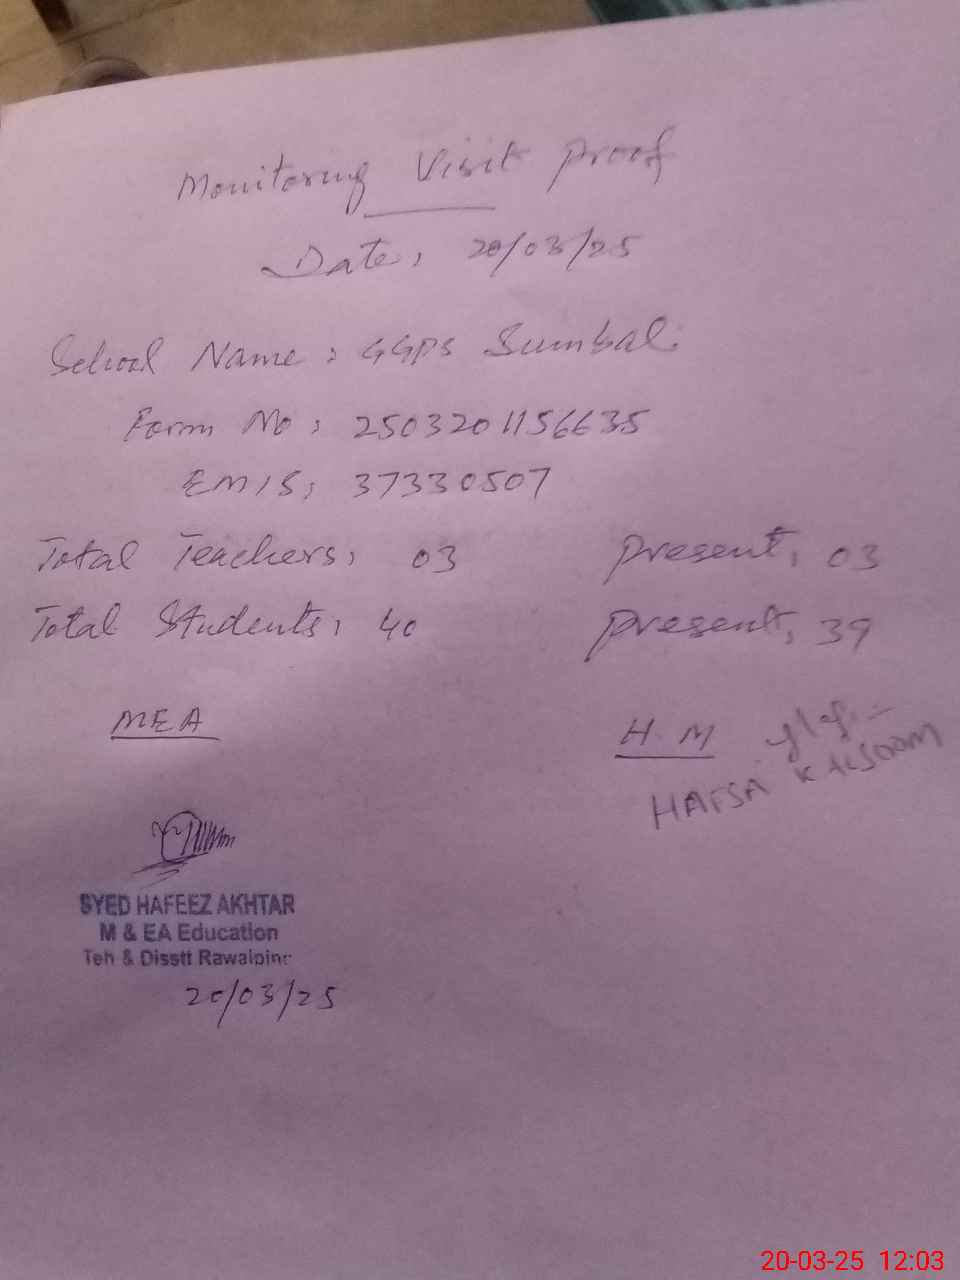 Monitoring Visit Proof
Date, 20/03/25
School Name : GGPS Sumbal.
Form No : 2503201156635
EMIS, 37330507
Total Teachers, 03 Present, 03
Total Students, 40 Present, 39
MEA H.M
HAFSA KALSOOM
SYED HAFEEZ AKHTAR
M & EA Education
Teh & Disstt Rawalpin
20/03/25
20-03-25 12:03